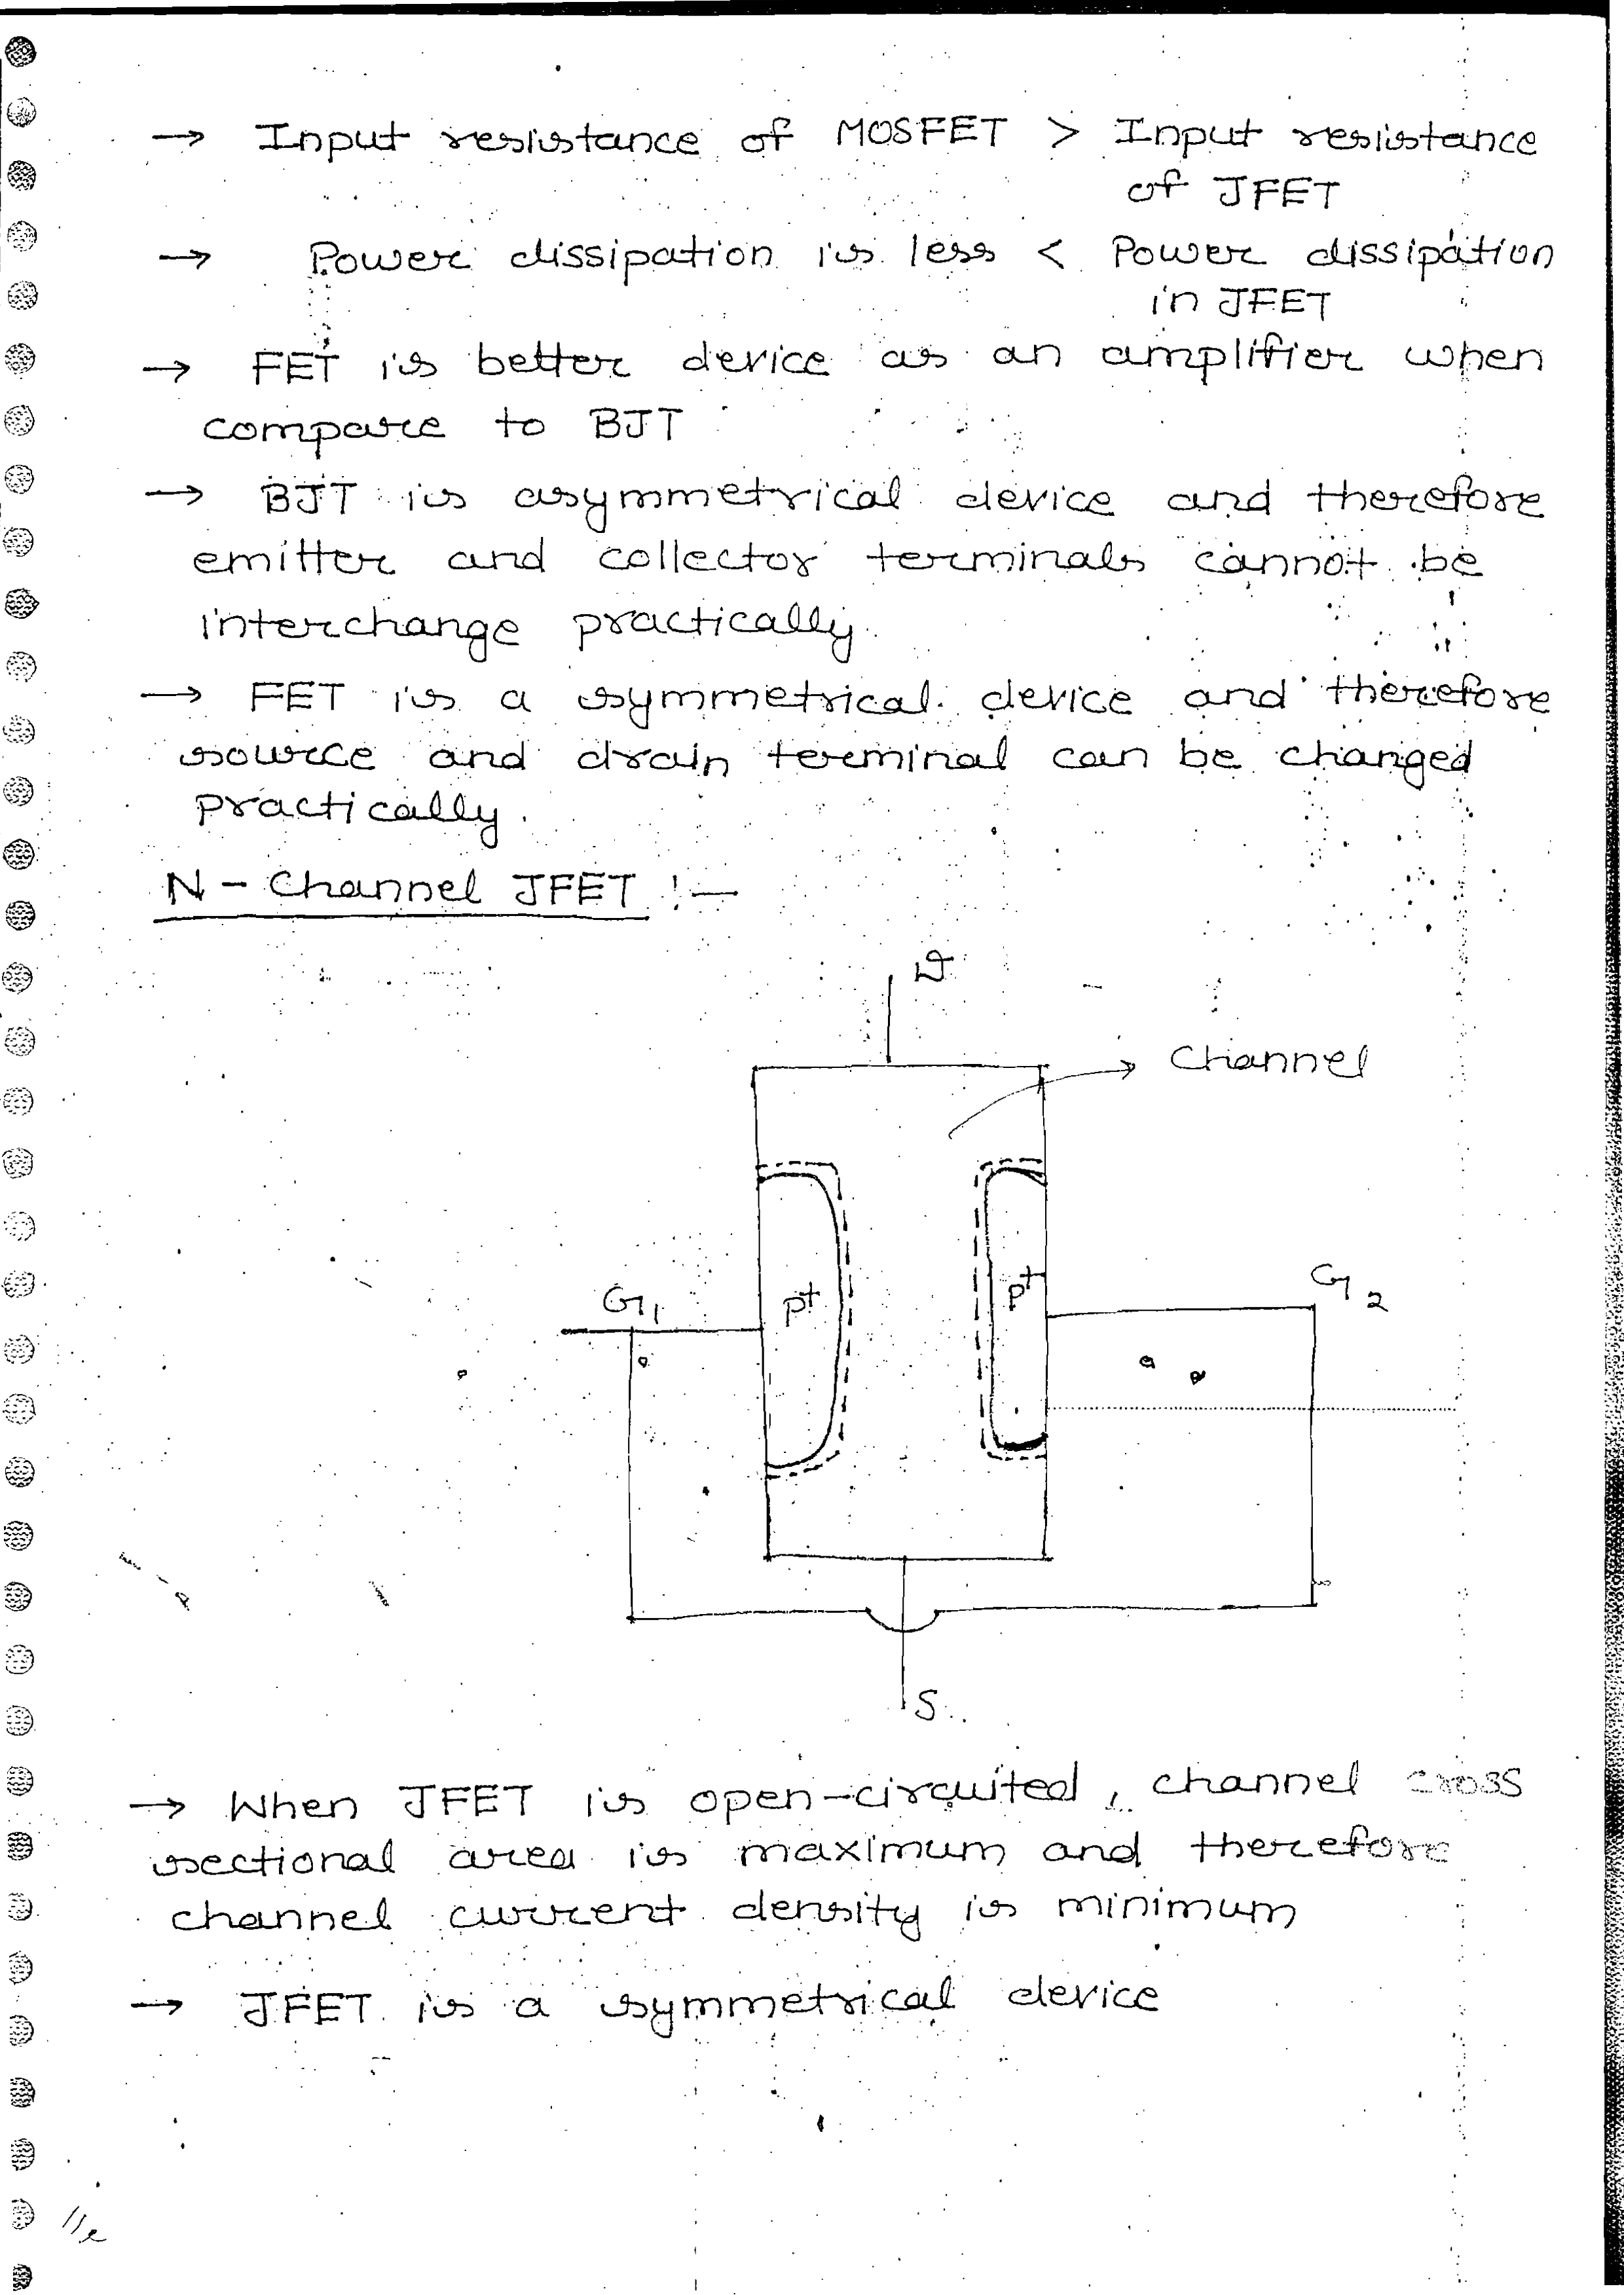 → Input resistance of MOSFET > Input resistance
of JFET
→ Power dissipation is less < Power dissipation
in JFET
→ FET is better device as an amplifier when
compare to BJT
→ BJT is asymmetrical device and therefore
emitter and collector terminals cannot be
interchange practically.
→ FET is a symmetrical device and therefore
source and drain terminal can be changed
practically.
N - Channel JFET :-
D
Channel
G1
P+
P+
G2
S
→ When JFET is open-circuited, channel cross
sectional area is maximum and therefore
channel current density is minimum
→ JFET is a symmetrical device